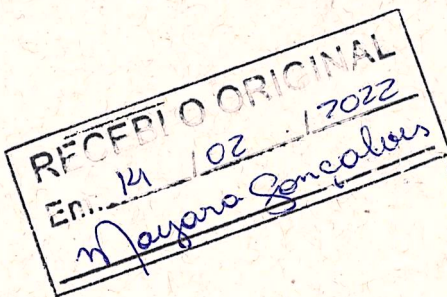 RECEBI O ORIGINAL
Em: 14 / 02 / 2022
Mayara Gonçalves